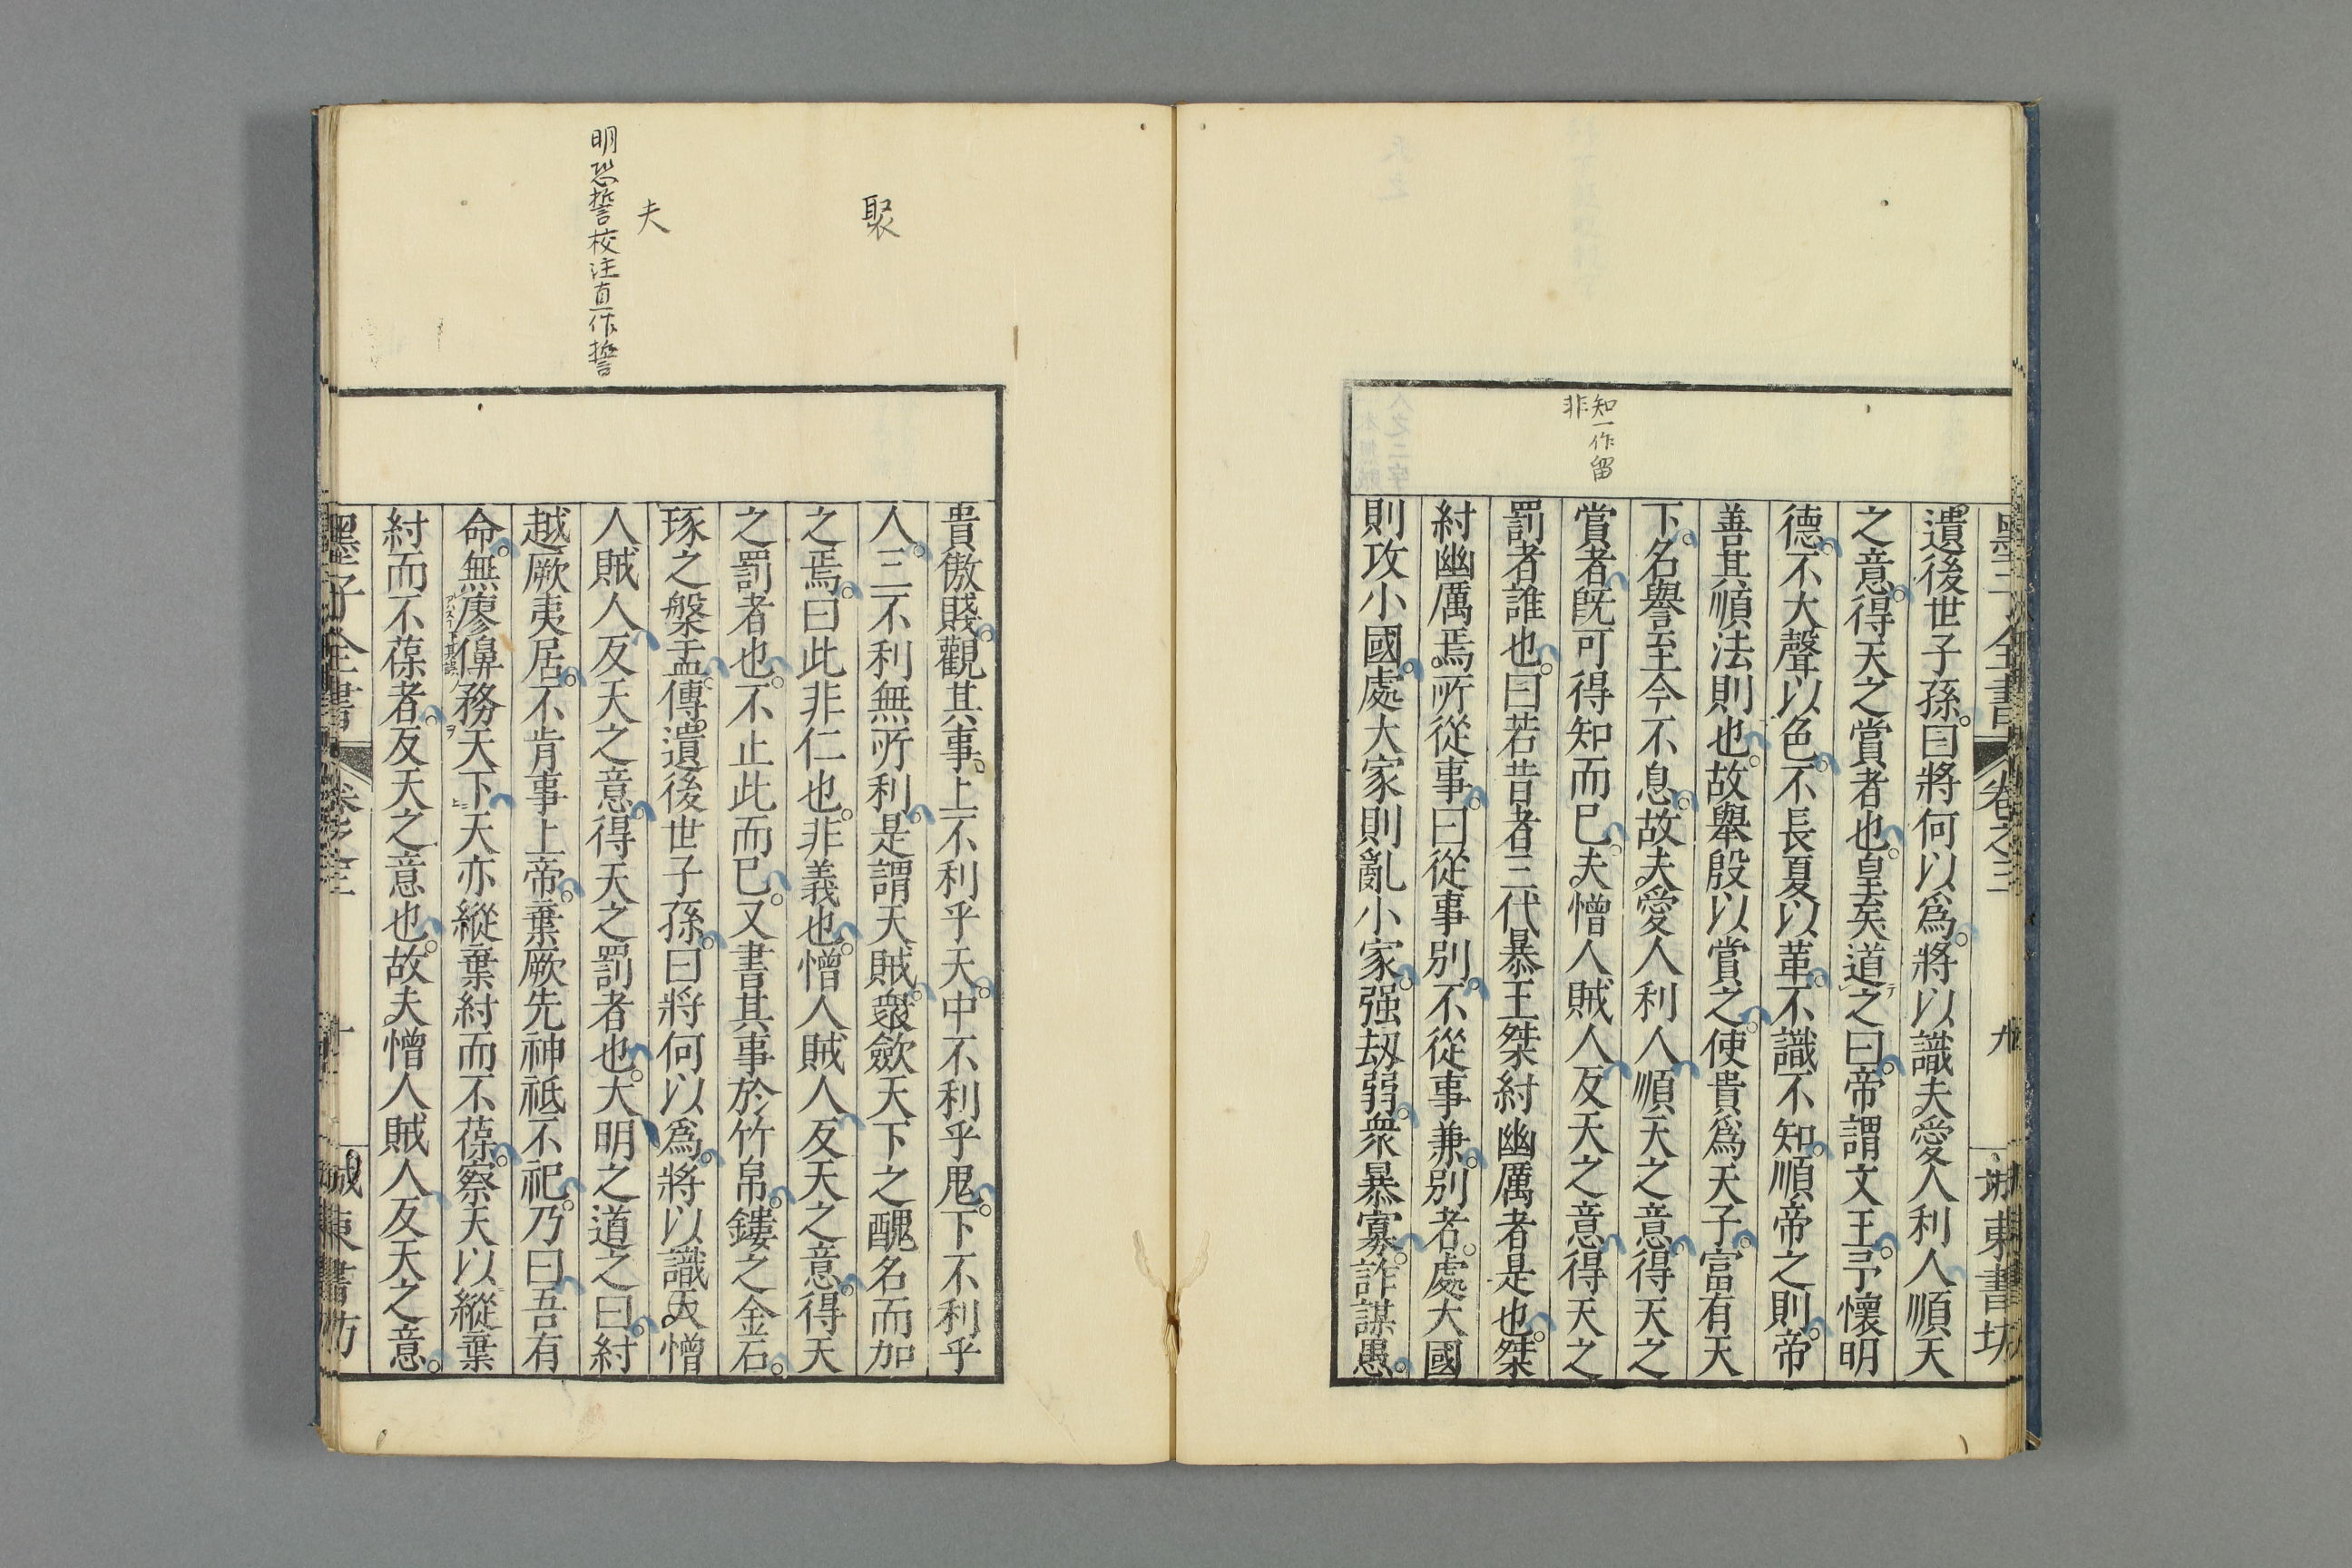 知一作留
非
墨子全書 卷之三 九 城東書坊
遺後世子孫。曰將何以爲。將以識夫愛人利人順天
之意。得天之賞者也。皇矣道之曰。帝謂文王。予懷明
德。不大聲以色。不長夏以革。不識不知。順帝之則。帝
善其順法則也。故舉殷以賞之。使貴爲天子。富有天
下。名譽至今不息。故夫愛人利人順天之意得天之
賞者旣可得知而已。夫憎人賊人反天之意得天之
罰者誰也。曰若昔者三代暴王桀紂幽厲者是也。桀
紂幽厲焉。所從事。曰從事別。不從事兼。別者。處大國
則攻小國。處大家則亂小家。强劫弱。衆暴寡。詐謀愚。
聚
夫
明恐誓校注直作誓
貴傲賤。觀其事。上不利乎天。中不利乎鬼。下不利乎
人。三不利無所利。是謂天賊。聚斂天下之醜名而加
之焉。曰此非仁也。非義也。憎人賊人反天之意。得天
之罰者也。不止此而已。又書其事於竹帛。鏤之金石。
琢之槃盂。傳遺後世子孫。曰將何以爲。將以識夫憎
人賊人反天之意。得天之罰者也。大明之道之曰。紂
越厥夷居。不肯事上帝。棄厥先神祗不祀。乃曰吾有
命。無廖𠏿務天下天亦縱棄紂而不葆。察天以縱棄
紂而不葆者。反天之意也。故夫憎人賊人反天之意。
墨子全書 卷之三 十 城東書坊